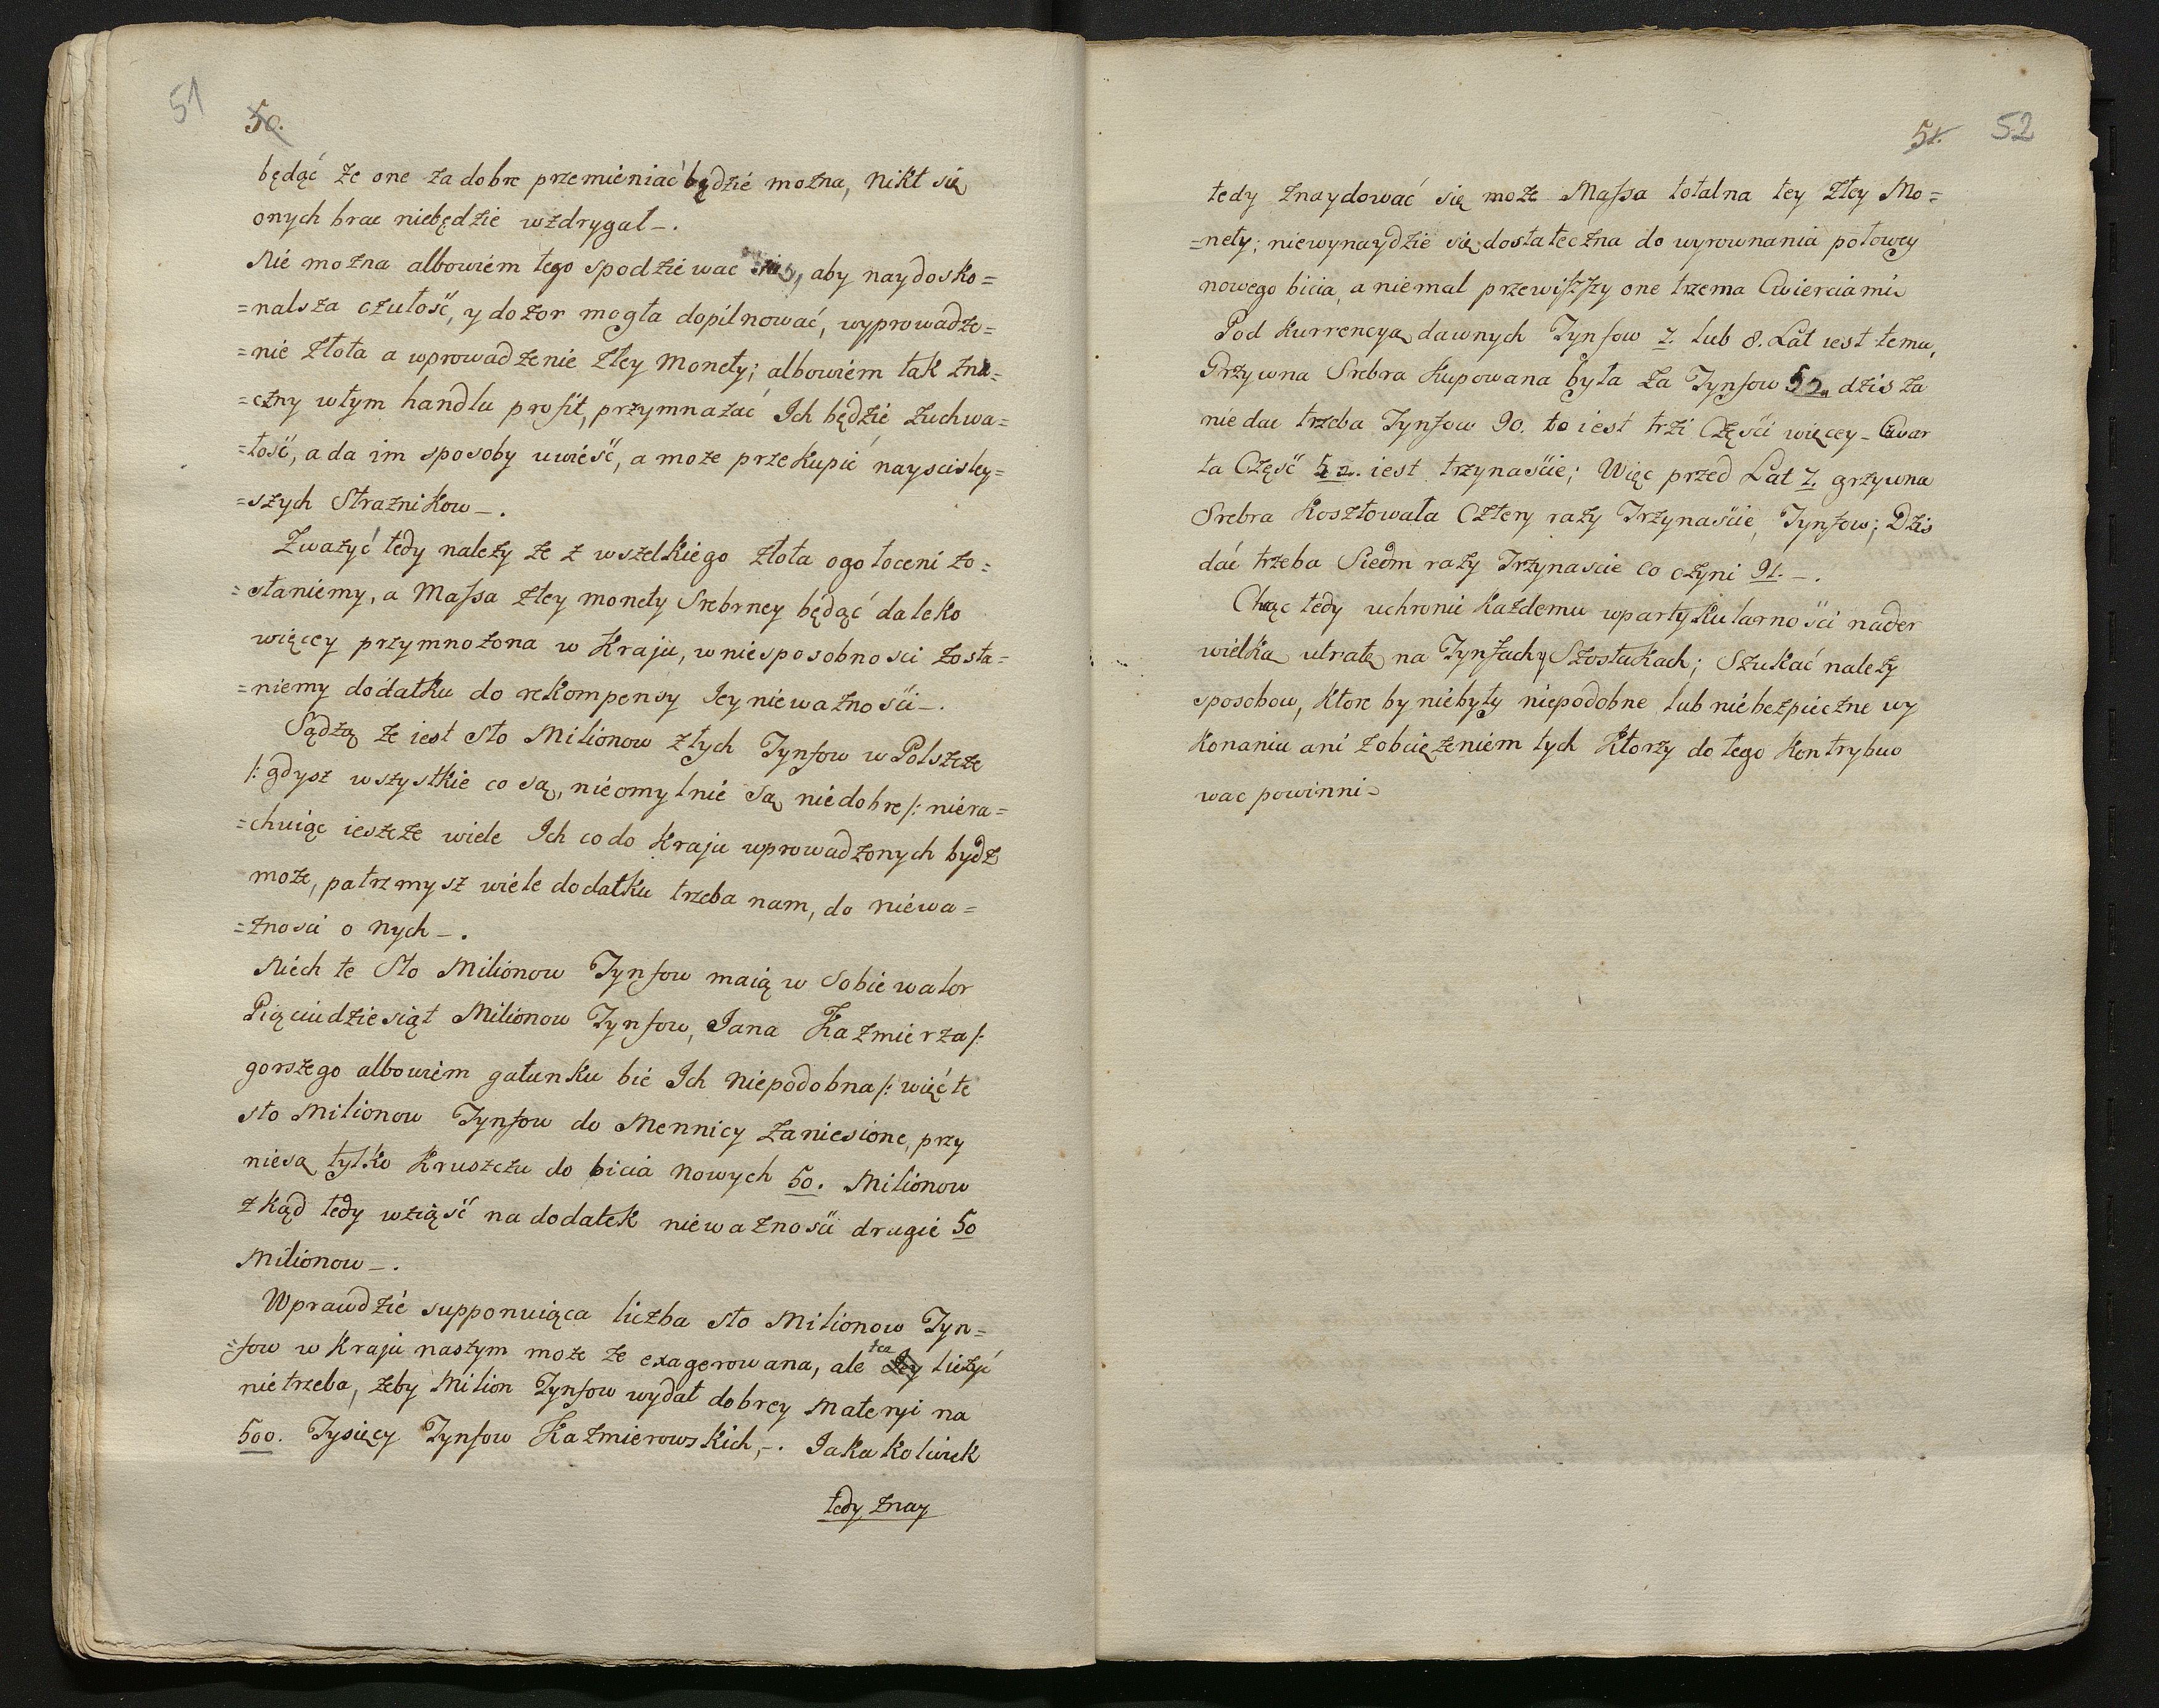 51
50.
będąć że one za dobre przemieniać będzie można, nikt się
onych brac niebędzie wzdrygał_.
Nie można albowiem tego spodziewac się, aby naydosko=
=nalsza czułość, y dozor mogła dopilnować, wyprowadze=
=nie złota a wprowadzenie złey Monety; albowiem tak zna=
=czny wtym handlu profit, przymnażać Ich będzie zuchwa=
=łość, a da im sposoby uwieść, a może przekupić nayscisley=
=szych Strażnikow_.
Zważyć tedy należy że z wszelkiego złota ogołoceni zo=
=staniemy, a Massa złey monety Srebrney będąć daleko
więcey przymnożona w Kraju, wniesposobnosci zosta=
=niemy dodatku do rekompensy Jey nieważności_.
Sądzą że iest sto Milionow złych Tynfow w Polszcze
/: gdysz wszystkie co są, nieomylnie są niedobre /: niera=
=chuiąc ieszcze wiele Ich co do Kraju wprowadzonych bydź
może, patrzmysz wiele dodatku trzeba nam, do niewa=
=żnosci onych_.
Niech te Sto Milionow Tynfow maią w sobie walor
Pięciudziesiąt Milionow Tynfow, Jana Kazmierza /:
gorszego albowiem gatunku bić Ich niepodobna /: więc te
sto Milionow Tynfow do Mennicy zaniesione, przy
niesą tylko Kruszczu do bicia nowych 50. Milionow
z kąd tedy wziąść na dodatek nieważności drugie 50
Milionow_.
Wprawdzie supponuiąca liczba sto Milionow Tyn=
=fow w Kraju naszym może że exagerowana, ale liczyć
nietrzeba, żeby Milion Tynfow wydał dobrey Materyi na
500. Tysięcy Tynfow Kazmierowskich,_. Jaka kolwiek
tedy znay
51. 52
tedy znaydować się może Massa totalna tey złey Mo=
=nety; niewynaydzie się dostateczna do wyrownania połowey
nowego bicia, a niemal przewiszszy one trzema Cwierciami
Pod Kurrencyą dawnych Tynfow 7. lub 8. Lat iest temu,
Grzywna Srebra Kupowana była za Tynfow 52. dzis za
nie dac trzeba Tynfow 90. to iest trzi Części więcey_ Czwar
ta Część 52. iest trzynaście; Więc przed Lat 7. grzywna
Srebra Kosztowała Cztery razy Trzynaście, Tynfow; Dzis
dać trzeba Siedm razy Trzynascie co czyni 91._.
Chcąc tedy uchronić Każdemu wpartykularności nader
wielką utratę na Tynfach y Szostakach; Szukać należy
sposobow, Ktore by niebyły niepodobne lub niebezpieczne wy
Konaniu ani zobciężeniem tych Ktorzy do tego Kontrybuo
wac powinni_